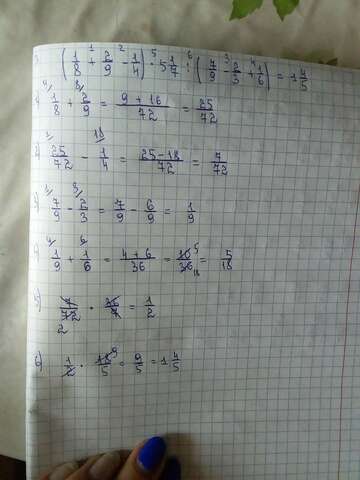 (1/8 + 2/9 - 1/4) · 5 1/7 : (7/9 - 2/3 + 1/6) = 1 4/5
1) 1/8 + 2/9 = (9 + 16)/72 = 25/72
2) 25/72 - 1/4 = (25 - 18)/72 = 7/72
3) 7/9 - 2/3 = 7/9 - 6/9 = 1/9
4) 1/9 + 1/6 = (4 + 6)/36 = 10/36 = 5/18
5) 7/72 · 36/7 = 1/2
6) 1/2 · 18/5 = 9/5 = 1 4/5